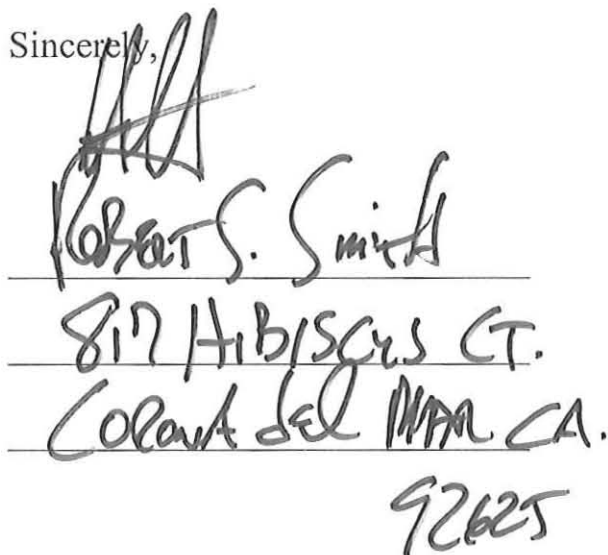 Sincerely,
Robert S. Smith
817 Hibiscus CT.
Corona del MAR CA.
92625